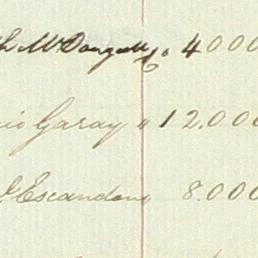 McDougall " 4000
Garay " 12.000
Escandon " 8.000